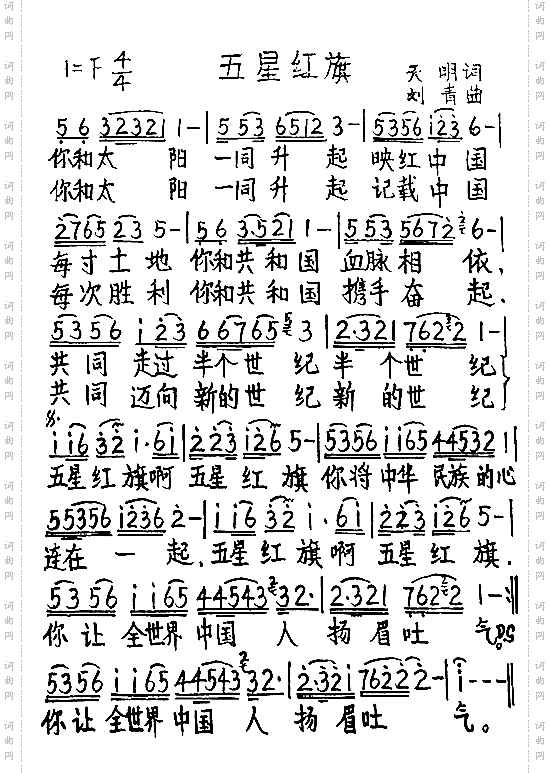 1=F 4/4 五星红旗 天明词
刘青曲
5 6 32321 1-| 5 53 6512 3-| 5356 123 6-|
你和太 阳 一同升 起 映红中国
你和太 阳 一同升 起 记载中国
2765 23 5-| 56 3521 1-| 553 5672 6-|
每寸土地 你和共和国 血脉相 依,
每次胜利 你和共和国 携手奋 起,
5356 i 23 66765 3| 2·321 7632 1-|
共同 走过 半个世 纪半 个世 纪
共同 迈向 新的世 纪新 的世 纪
ii6 32 i·6i| 223 i26 5-| 5356 ii65 44532 1|
五星红旗啊 五星红旗 你将中华 民族的心
55356 i236 2-| ii6 32 i·6i| 223 i26 5-|
连在 一 起,五星红旗啊 五星红旗.
5356 ii65 44543 32·| 2·321 7622 1-:||
你让 全世界 中国 人 扬眉吐 气。D.S
5356 ii65 44543 32·| 2·32i 76222-| i---||
你让 全世界 中国 人 扬 眉吐 气。
词曲网